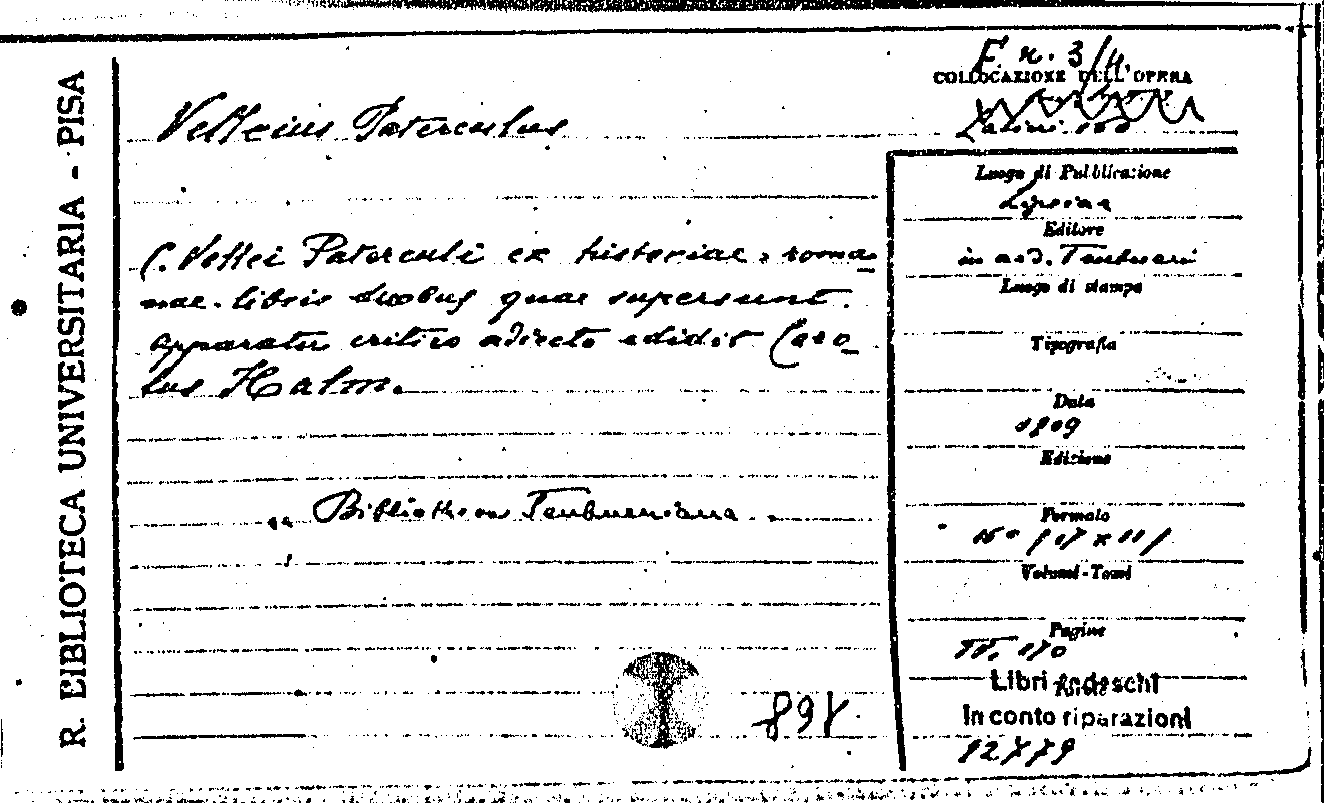 R. BIBLIOTECA UNIVERSITARIA - PISA
F. n. 3/4.
COLLOCAZIONE DELL'OPERA
Velleius Paterculus
Latini
Luogo di Pubblicazione
Lipsiae
Editore
C. Vellei Paterculi ex historiae roma_
in aed. Teubneri
nae libris duobus quae supersunt.
Luogo di stampa
apparatu critico adiecto edidit Caro_
Tipografia
lus Halm.
Data
Edizione
Bibliotheca Teubneriana
Formato
16° (17 x 11)
Volumi-Tomi
Pagine
IV, 170
Libri tedeschi
In conto riparazioni